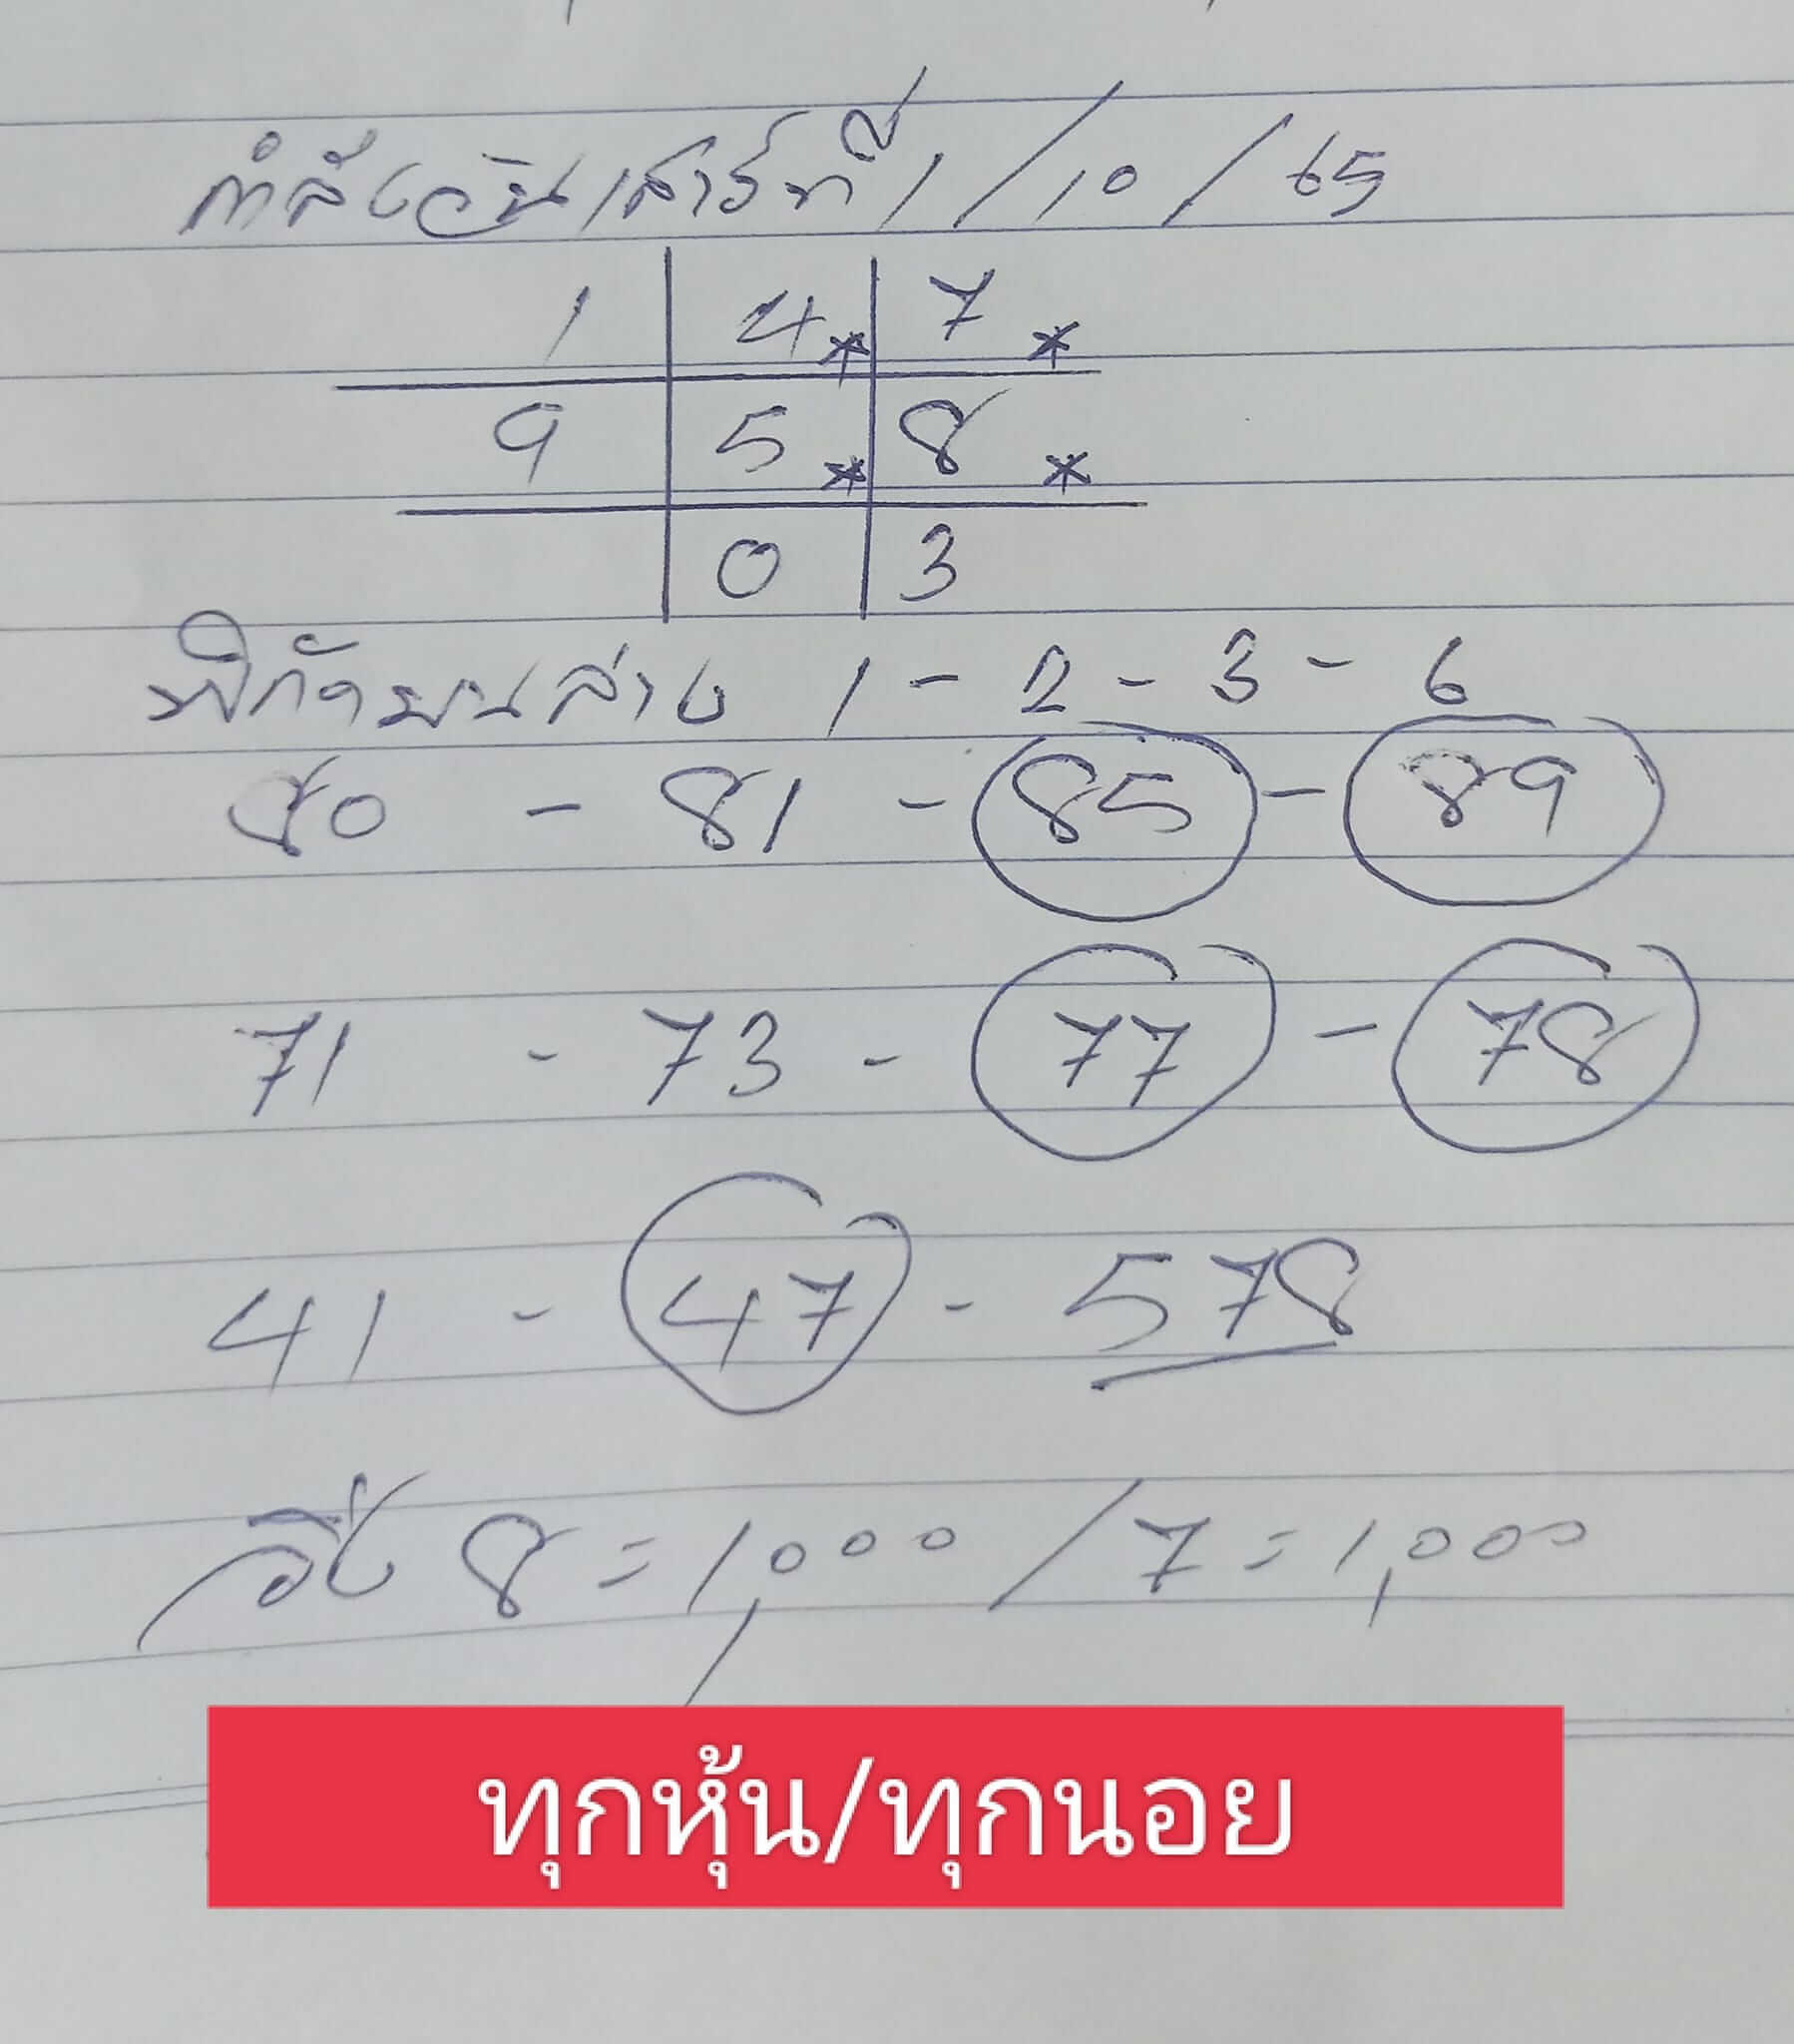 กำลังวันเสาร์ที่ 1/10/65
1 4* 7*
9 5* 8*
0 3
พิกัดบนล่าง 1 - 2 - 3 - 6
80 - 81 - 85 - 89
71 - 73 - 77 - 78
41 - 47 - 578
วิ่ง 8 = 1,000 / 7 = 1,000
ทุกหุ้น/ทุกนอย